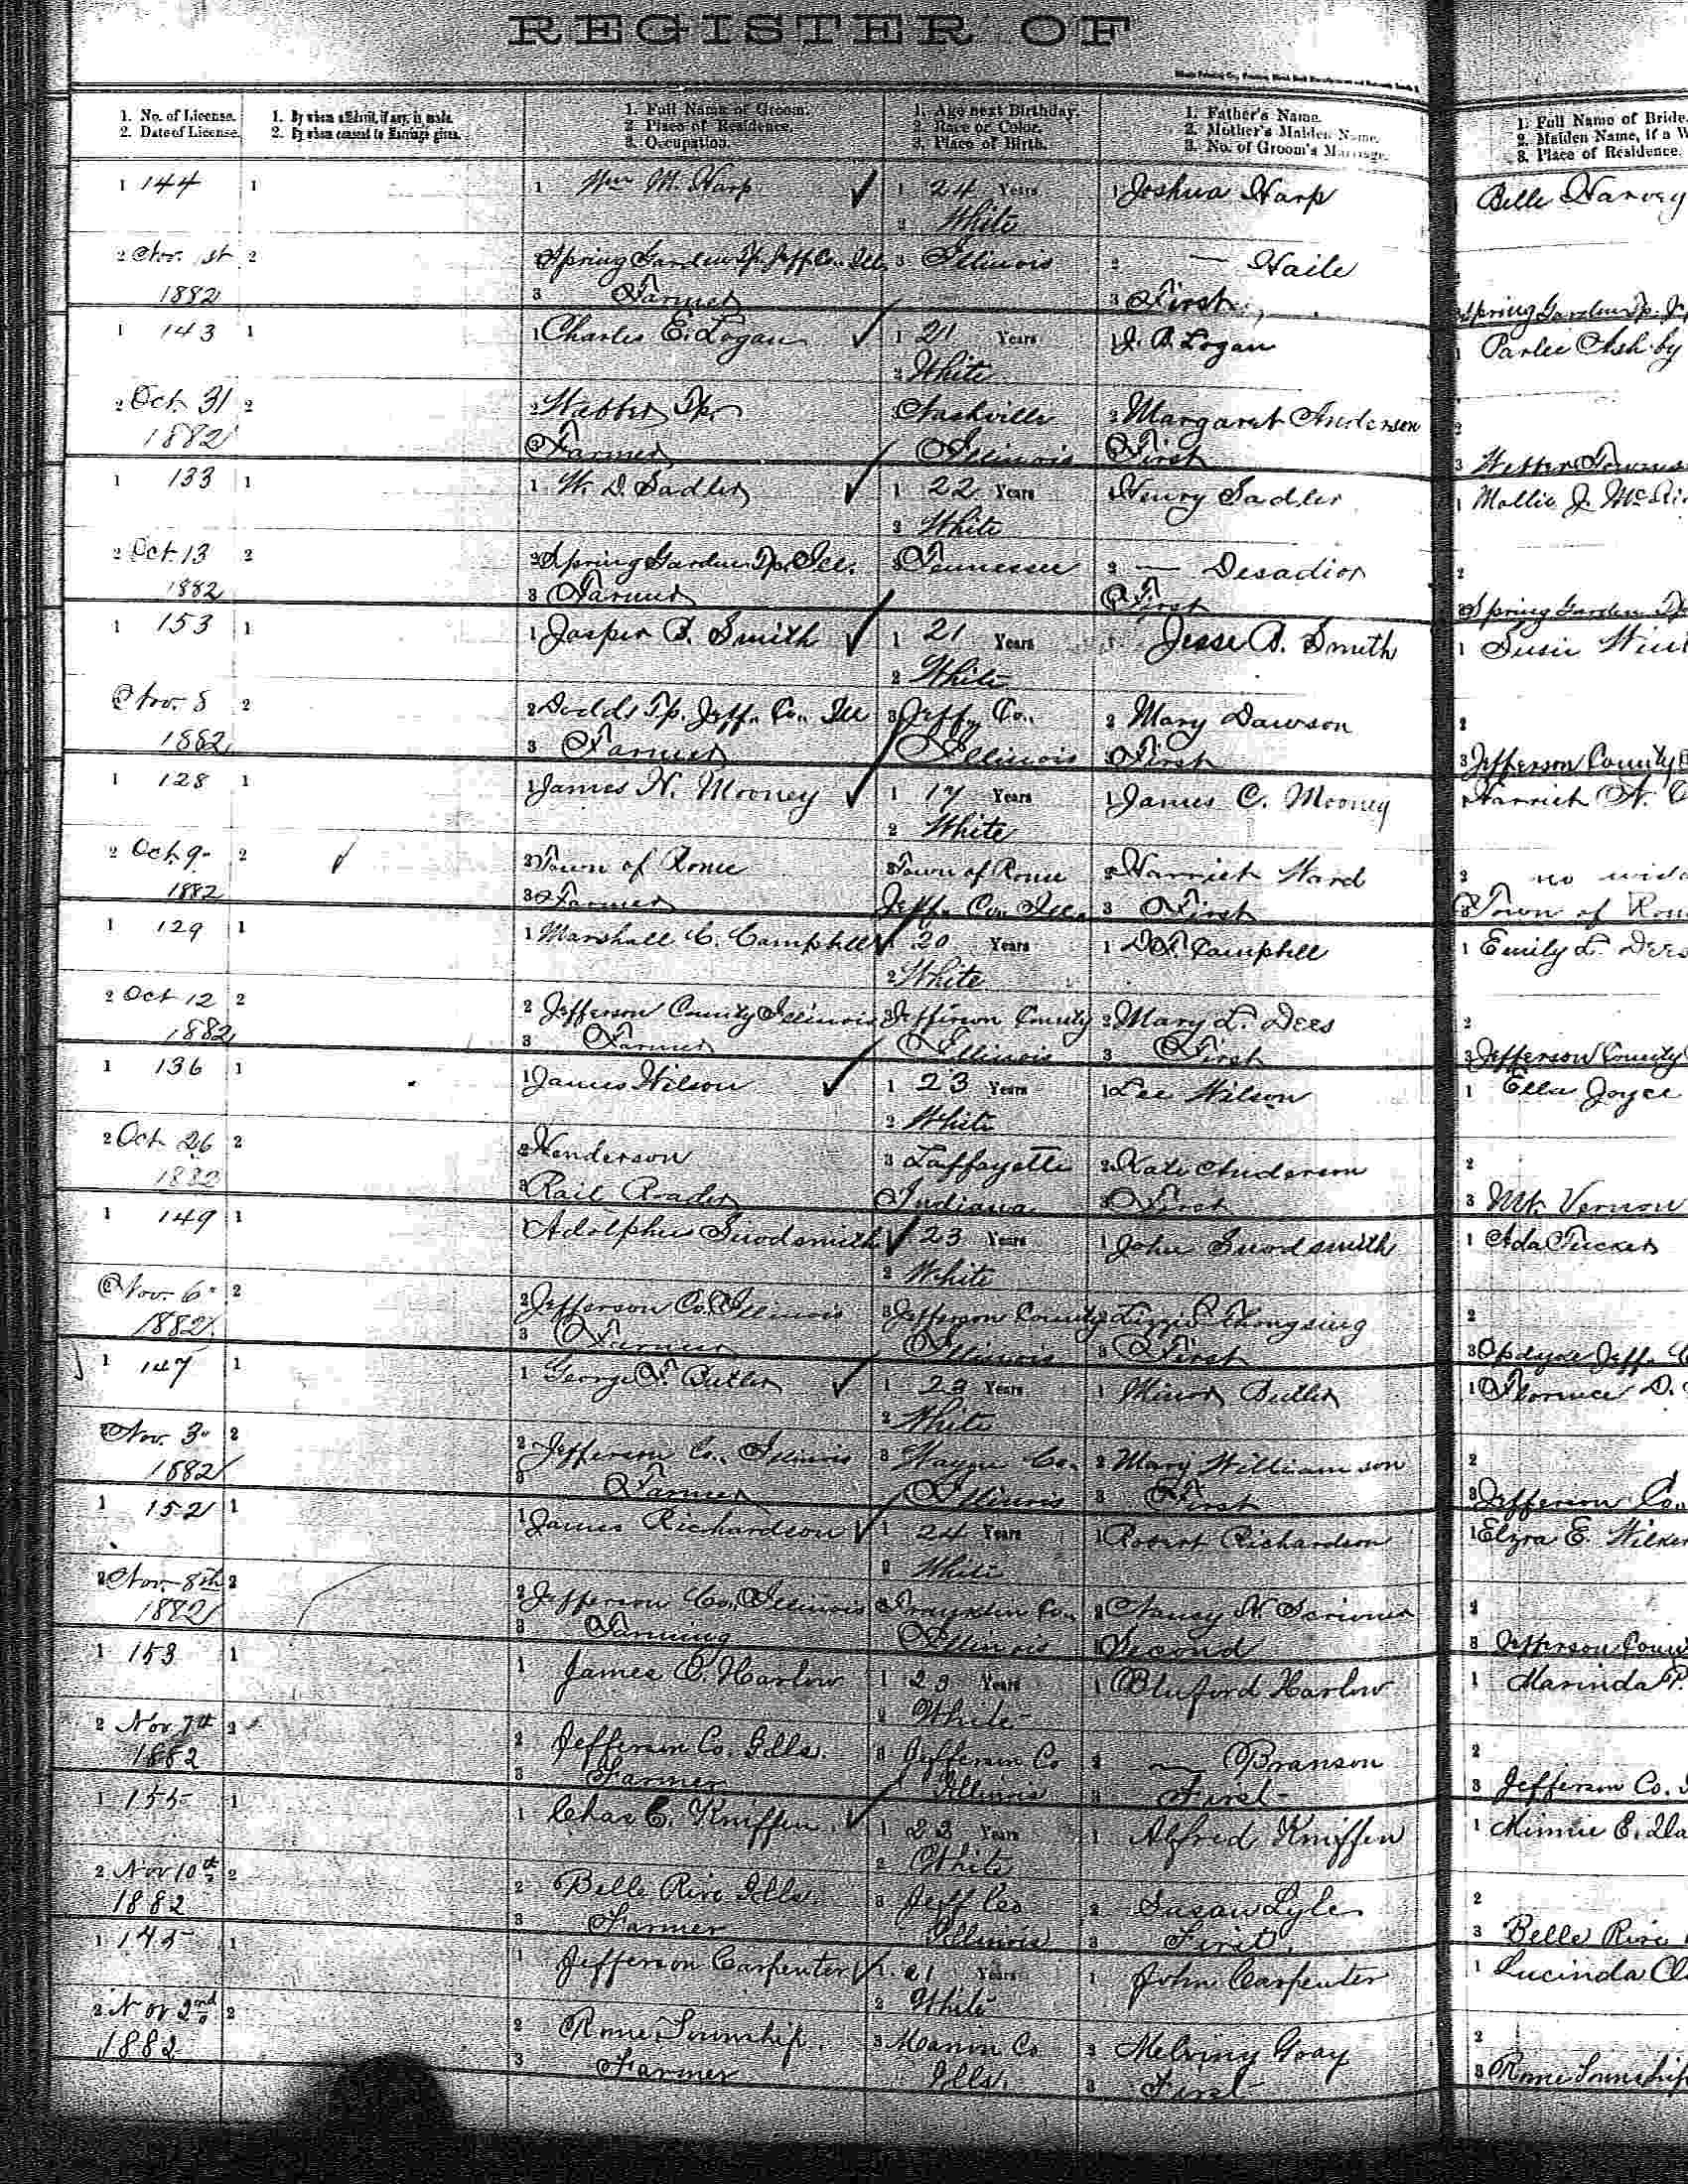 REGISTER OF
1. No. of License. 2. Date of License.
1. By whom affidavit, if any, is made. 2. By whom consent to Marriage given.
1. Full Name of Groom. 2. Place of Residence. 3. Occupation.
1. Age next Birthday. 2. Race or Color. 3. Place of Birth.
1. Father's Name. 2. Mother's Maiden Name. 3. No. of Groom's Marriage.
1. Full Name of Bride. 2. Maiden Name, if a W 3. Place of Residence.
1 144 1 1 Wm M. Harp 1 24 Years 1 Joshua Harp Belle Harvey
2 White
2 Nov. 1st 2 Spring Garden Tp. Jeff Co. Ills 3 Illinois 2 — Haile
1882 3 Farmer 3 First Spring Garden Tp. J
1 143 1 1 Charles E. Logan 1 21 Years 1 J. B. Logan Parlee Ashby
2 White
2 Oct. 31 2 2 Webber Tp. Nashville 2 Margaret Anderson
1882 3 Farmer Illinois 3 First 3 Webber
1 133 1 1 W. D. Sadler 1 22 Years 1 Henry Sadler 1 Mollie J.
2 White
2 Oct. 13 2 2 Spring Garden Tp. Ill. 3 Tennessee 2 — Desadior
1882 3 Farmer 3 First Spring Garden Tp
1 153 1 1 Jasper B. Smith 1 21 Years 1 Jesse B. Smith 1 Susie
2 White
2 Nov. 8 2 2 Dodds Tp. Jeff. Co. Ill 3 Jeff. Co. 2 Mary Dawson
1882 3 Farmer Illinois 3 First 3 Jefferson County
1 128 1 1 James H. Mooney 1 17 Years 1 James C. Mooney 1 Harriet N.
2 White
2 Oct. 9 2 2 Town of Rome 3 Town of Rome 2 Harriet Ward 2 no
1882 3 Farmer Jeff. Co. Ills. 3 First 3 Town of Rom
1 129 1 1 Marshall C. Campbell 1 20 Years 1 Campbell 1 Emily L. Dees
2 White
2 Oct 12 2 2 Jefferson County Illinois 3 Jefferson County 2 Mary L. Dees
1882 3 Farmer Illinois 3 First 3 Jefferson County
1 136 1 1 James Wilson 1 23 Years 1 Lee Wilson 1 Ella Joyce
2 White
2 Oct. 26 2 2 Henderson 3 Laffayette 2 Kate Anderson
1882 3 Rail Roader Indiana 3 First 3 Mt. Vernon
1 149 1 Adolphus Swordsmith 1 23 Years 1 John Swordsmith 1 Ada Tucker
2 White
2 Nov. 6 2 2 Jefferson Co. Illinois 3 Jefferson County 2 Lizzie
1882 3 Farmer Illinois 3 First 3 Opdyke Jeff.
1 147 1 1 George F. Butler 1 23 Years 1 Minor Butler 1 Florence D.
2 White
2 Nov. 3 2 2 Jefferson Co. Illinois 3 Wayne Co. 2 Mary Williamson
1882 3 Farmer Illinois 3 First 3 Jefferson Co.
1 152 1 1 James Richardson 1 24 Years 1 Robert Richardson 1 Elzra E.
2 White
2 Nov. 8th 2 2 Jefferson Co. Illinois Co. 2 Nancy
1882 3 Farming Illinois Second 3 Jefferson Coun
1 153 1 1 James C. Harlow 1 23 Years 1 Bluford Harlow 1 Marinda
2 White
2 Nov 7th 2 2 Jefferson Co. Ills. 3 Jefferson Co 2 — Branson
1882 3 Farmer Illinois 3 First 3 Jefferson Co.
1 155 1 1 Chas C. Kniffen 1 23 Years 1 Alfred Kniffen 1 Minnie E.
2 White
2 Nov 10th 2 2 Belle Rive Ills. 3 Jeff Co 2 Susan Lyle
1882 3 Farmer Illinois 3 First. 3 Belle Rive
1 145 1 1 Jefferson Carpenter 1 21 Years 1 John Carpenter 1 Lucinda
2 White
2 Nov 2nd 2 2 Rome Township. 3 Marion Co 2 Gray
1882 3 Farmer Ills. 3 First 3 Rome Township